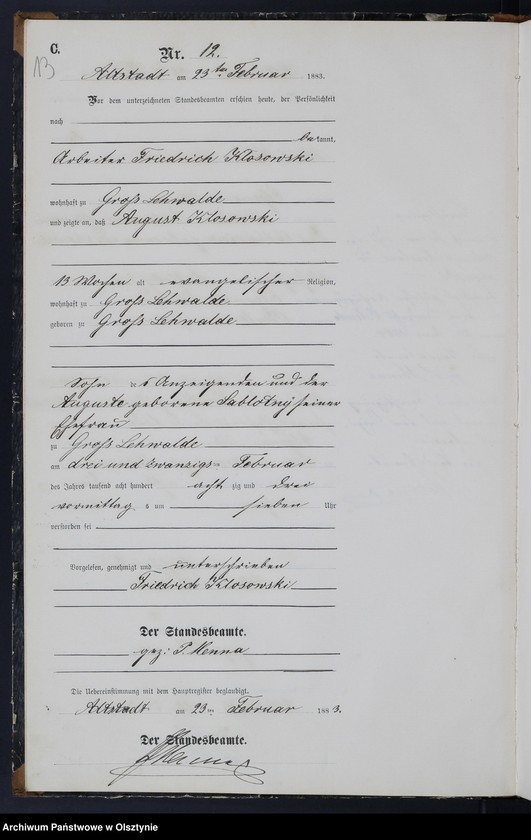 C.
Nr. 12.
13
Altstadt am 23ten Februar 1883.
Vor dem unterzeichneten Standesbeamten erschien heute, der Persönlichkeit
nach
bekannt,
Arbeiter Friedrich Klosowski
wohnhaft zu Groß Lehwalde
und zeigte an, daß August Klosowski
13 Wochen alt evangelischer Religion,
wohnhaft zu Groß Lehwalde
geboren zu Groß Lehwalde
Sohn des Anzeigenden und der
Auguste geborene Sablotny seiner
Ehefrau
zu Groß Lehwalde
am drei und zwanzigs Februar
des Jahres tausend acht hundert acht zig und drei
vormittag s um sieben Uhr
verstorben sei
Vorgelesen, genehmigt und unterschrieben
Friedrich Klosowski
Der Standesbeamte.
gez: P. Menna
Die Uebereinstimmung mit dem Hauptregister beglaubigt.
Altstadt am 23ten Februar 1883.
Der Standesbeamte.
Archiwum Państwowe w Olsztynie